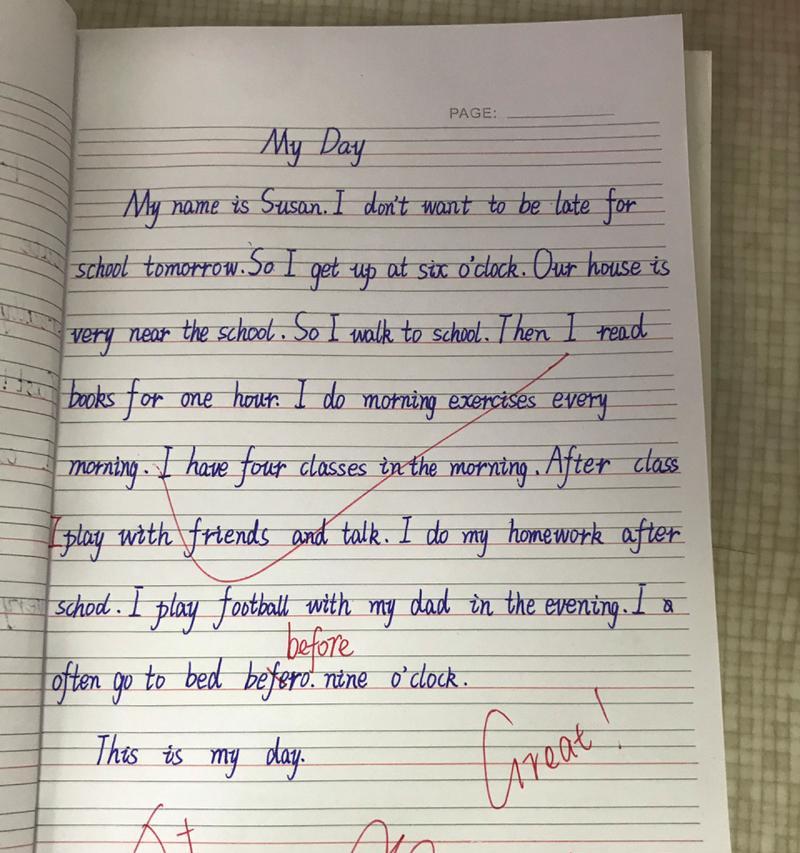 PAGE:
My Day
My name is Susan. I don't want to be late for
school tomorrow. So I get up at six o'clock. Our house is
very near the school. So I walk to school. Then I read
books for one hour. I do morning exercises every
morning. I have four classes in the morning. After class
I play with friends and talk. I do my homework after
schod. I play football with my dad in the evening. I a
before
often go to bed befero. nine o'clock.
This is my day.
Great!